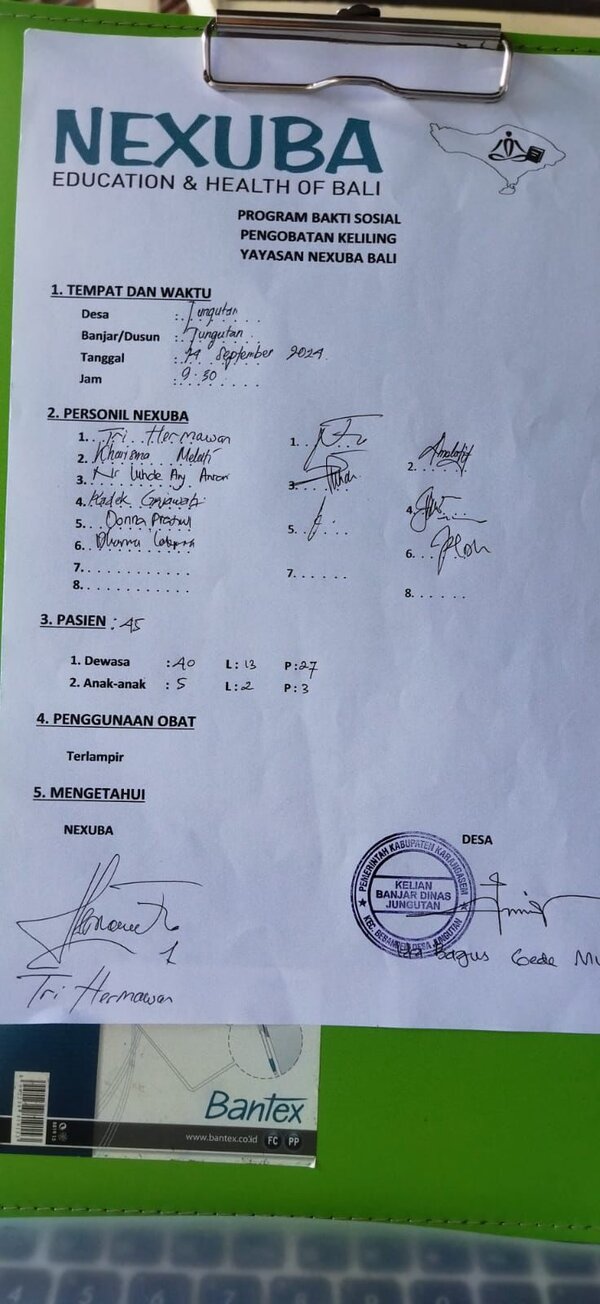 NEXUBA
EDUCATION & HEALTH OF BALI
PROGRAM BAKTI SOSIAL
PENGOBATAN KELILING
YAYASAN NEXUBA BALI
1. TEMPAT DAN WAKTU
Desa : Jungutan
Banjar/Dusun : Jungutan
Tanggal : September 2024
Jam : 9.30
2. PERSONIL NEXUBA
1. Tri Hermawan 1.
2. Kharisma Melati 2.
3. Ni Luhde Ary 3.
4. Kadek 4.
5. Donna 5.
6. Dharma 6.
7. ...... 7. ......
8. ...... 8. ......
3. PASIEN : 45
1. Dewasa : 40 L : 13 P : 27
2. Anak-anak : 5 L : 2 P : 3
4. PENGGUNAAN OBAT
Terlampir
5. MENGETAHUI
NEXUBA DESA
PEMERINTAH KABUPATEN KARANGASEM
KELIAN
BANJAR DINAS
JUNGUTAN
KEC. BEBANDEM DESA JUNGUTAN
Ida Bagus Gede
Tri Hermawan
Bantex
www.bantex.co.id FC PP